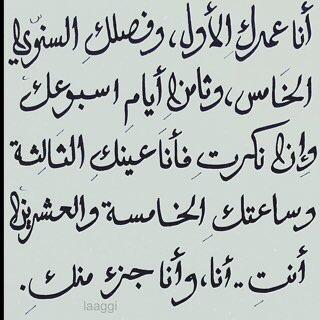 أنا عمركِ الأول، وفصلكِ السنوي
الخامس، وثامن أيام اسبوعك
وإن نكرتِ فأنا عينكِ الثالثة
وساعتكِ الخامسة والعشرين
أنتِ .. أنا، وأنا جزء منكِ.
laaggi